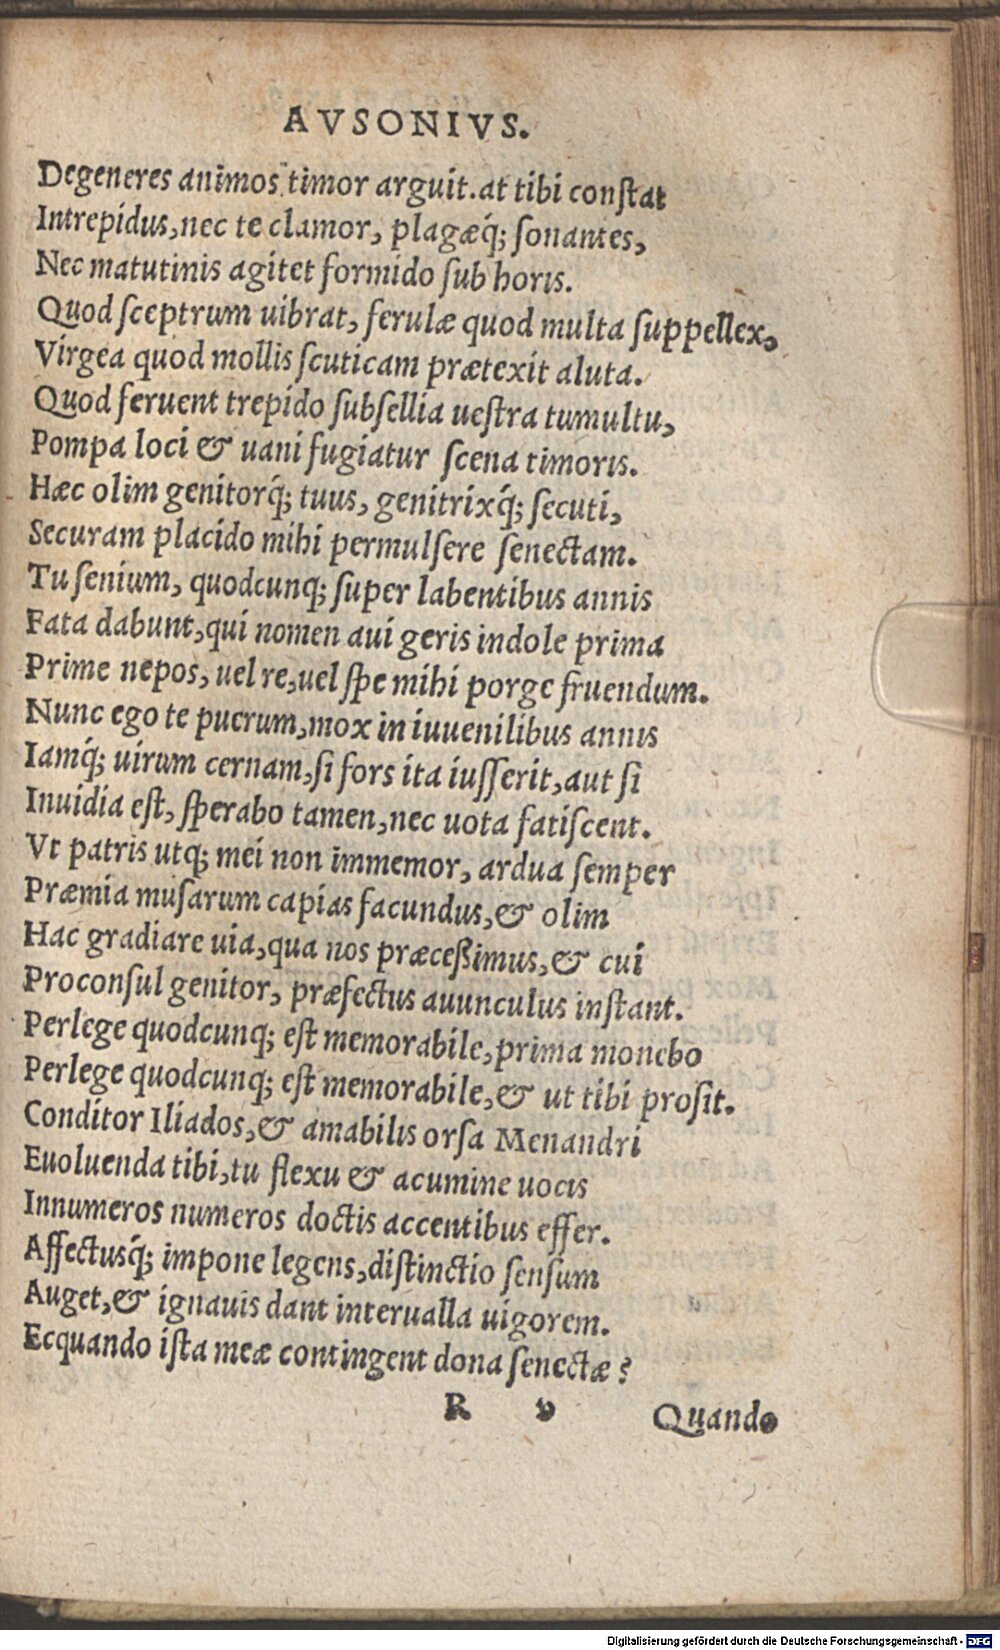 AVSONIVS.
Degeneres animos timor arguit. at tibi constat
Intrepidus, nec te clamor, plagæq́; sonantes,
Nec matutinis agitet formido sub horis.
Quod sceptrum uibrat, ferulæ quod multa suppellex,
Virgea quod mollis scuticam prætexit aluta.
Quod feruent trepido subsellia uestra tumultu,
Pompa loci & uani fugiatur scena timoris.
Hæc olim genitorq́; tuus, genitrixq́; secuti,
Securam placido mihi permulsere senectam.
Tu senium, quodcunq; super labentibus annis
Fata dabunt, qui nomen aui geris indole prima
Prime nepos, uel re, uel spe mihi porge fruendum.
Nunc ego te puerum, mox in iuuenilibus annis
Iamq́; uirum cernam, si fors ita iusserit, aut si
Inuidia est, sperabo tamen, nec uota fatiscent.
Vt patris utq; mei non immemor, ardua semper
Præmia musarum capias facundus, & olim
Hac gradiare uia, qua nos præceßimus, & cui
Proconsul genitor, præfectus auunculus instant.
Perlege quodcunq; est memorabile, prima monebo
Perlege quodcunq; est memorabile, & ut tibi prosit.
Conditor Iliados, & amabilis orsa Menandri
Euoluenda tibi, tu flexu & acumine uocis
Innumeros numeros doctis accentibus effer.
Affectusq́; impone legens, distinctio sensum
Auget, & ignauis dant interualla uigorem.
Ecquando ista meæ contingent dona senectæ?
R v Quando
Digitalisierung gefördert durch die Deutsche Forschungsgemeinschaft - DFG